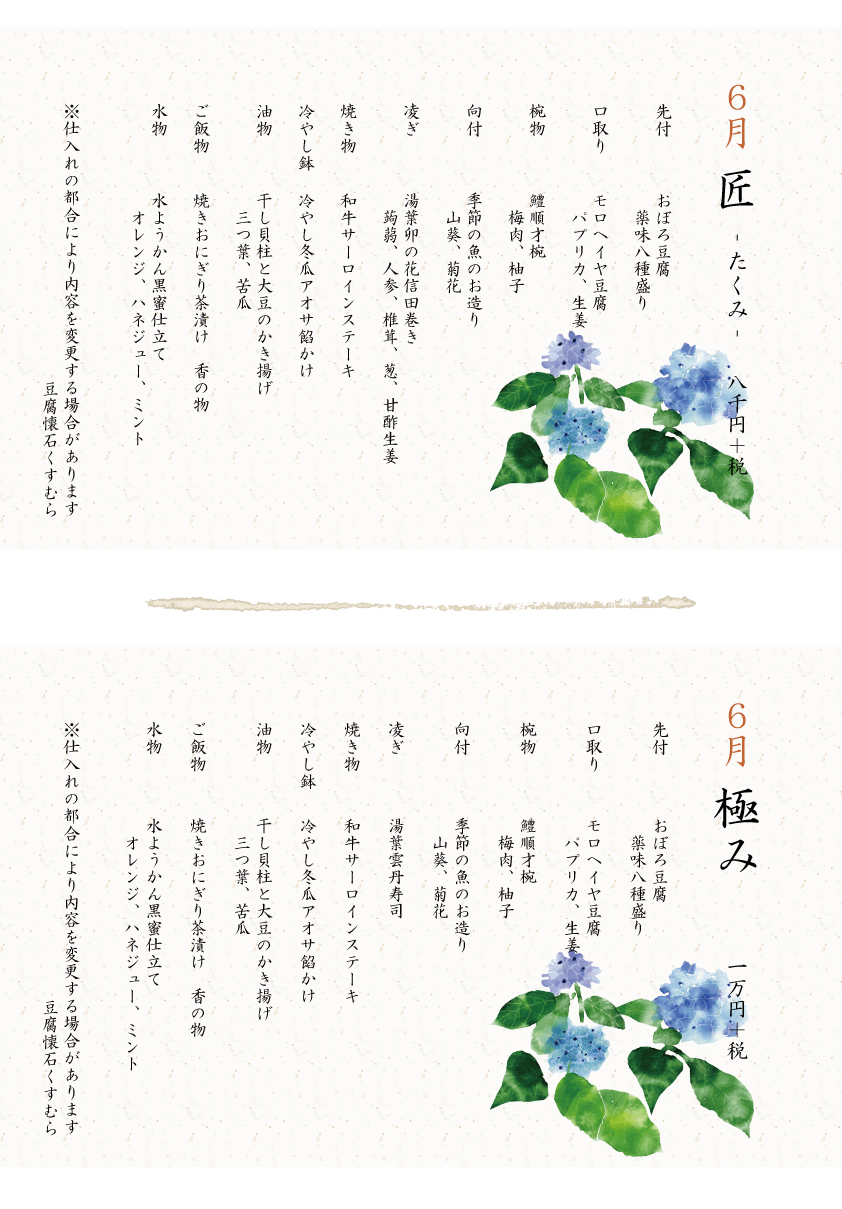 6月 匠 -たくみ- 八千円+税
先付 おぼろ豆腐
薬味八種盛り
口取り モロヘイヤ豆腐
パプリカ、生姜
椀物 鱧順才椀
梅肉、柚子
向付 季節の魚のお造り
山葵、菊花
凌ぎ 湯葉卯の花信田巻き
蒟蒻、人参、椎茸、葱、甘酢生姜
焼き物 和牛サーロインステーキ
冷やし鉢 冷やし冬瓜アオサ餡かけ
油物 干し貝柱と大豆のかき揚げ
三つ葉、苦瓜
ご飯物 焼きおにぎり茶漬け 香の物
水物 水ようかん黒蜜仕立て
オレンジ、ハネジュー、ミント
※仕入れの都合により内容を変更する場合があります
豆腐懐石くすむら
6月 極み 一万円+税
先付 おぼろ豆腐
薬味八種盛り
口取り モロヘイヤ豆腐
パプリカ、生姜
椀物 鱧順才椀
梅肉、柚子
向付 季節の魚のお造り
山葵、菊花
凌ぎ 湯葉雲丹寿司
焼き物 和牛サーロインステーキ
冷やし鉢 冷やし冬瓜アオサ餡かけ
油物 干し貝柱と大豆のかき揚げ
三つ葉、苦瓜
ご飯物 焼きおにぎり茶漬け 香の物
水物 水ようかん黒蜜仕立て
オレンジ、ハネジュー、ミント
※仕入れの都合により内容を変更する場合があります
豆腐懐石くすむら